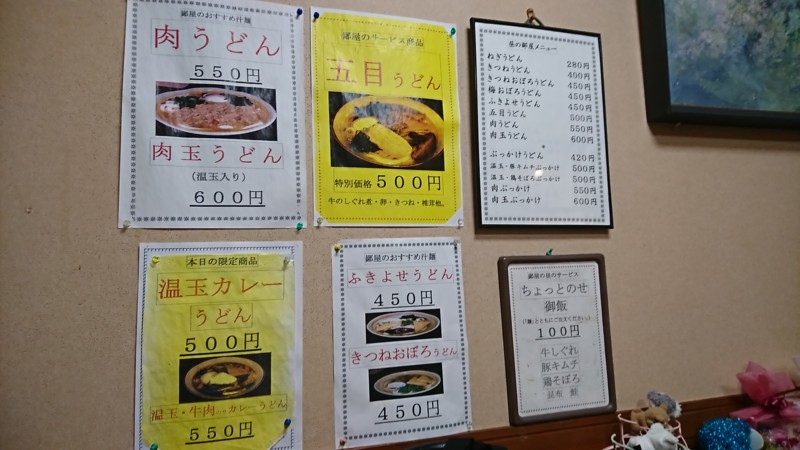 部屋のおすすめ汁麺
肉うどん
５５０円
肉玉うどん
（温玉入り）
６００円
部屋のサービス商品
五目うどん
特別価格 ５００円
牛のしぐれ煮・卵・きつね・椎茸他。
昼の部屋メニュー
ねぎうどん 280円
きつねうどん 400円
きつねおぼろうどん 450円
梅おぼろうどん 450円
ふきよせうどん 450円
五目うどん 500円
肉うどん 550円
肉玉うどん 600円
ぶっかけうどん 420円
温玉・豚キムチぶっかけ 500円
温玉・鶏そぼろぶっかけ 500円
肉ぶっかけ 550円
肉玉ぶっかけ 600円
本日の限定商品
温玉カレー
うどん
５００円
温玉・牛肉入りカレーうどん
５５０円
部屋のおすすめ汁麺
ふきよせうどん
４５０円
きつねおぼろうどん
４５０円
部屋の昼のサービス
ちょっとのせ
御飯
１００円
牛しぐれ
豚キムチ
鶏そぼろ